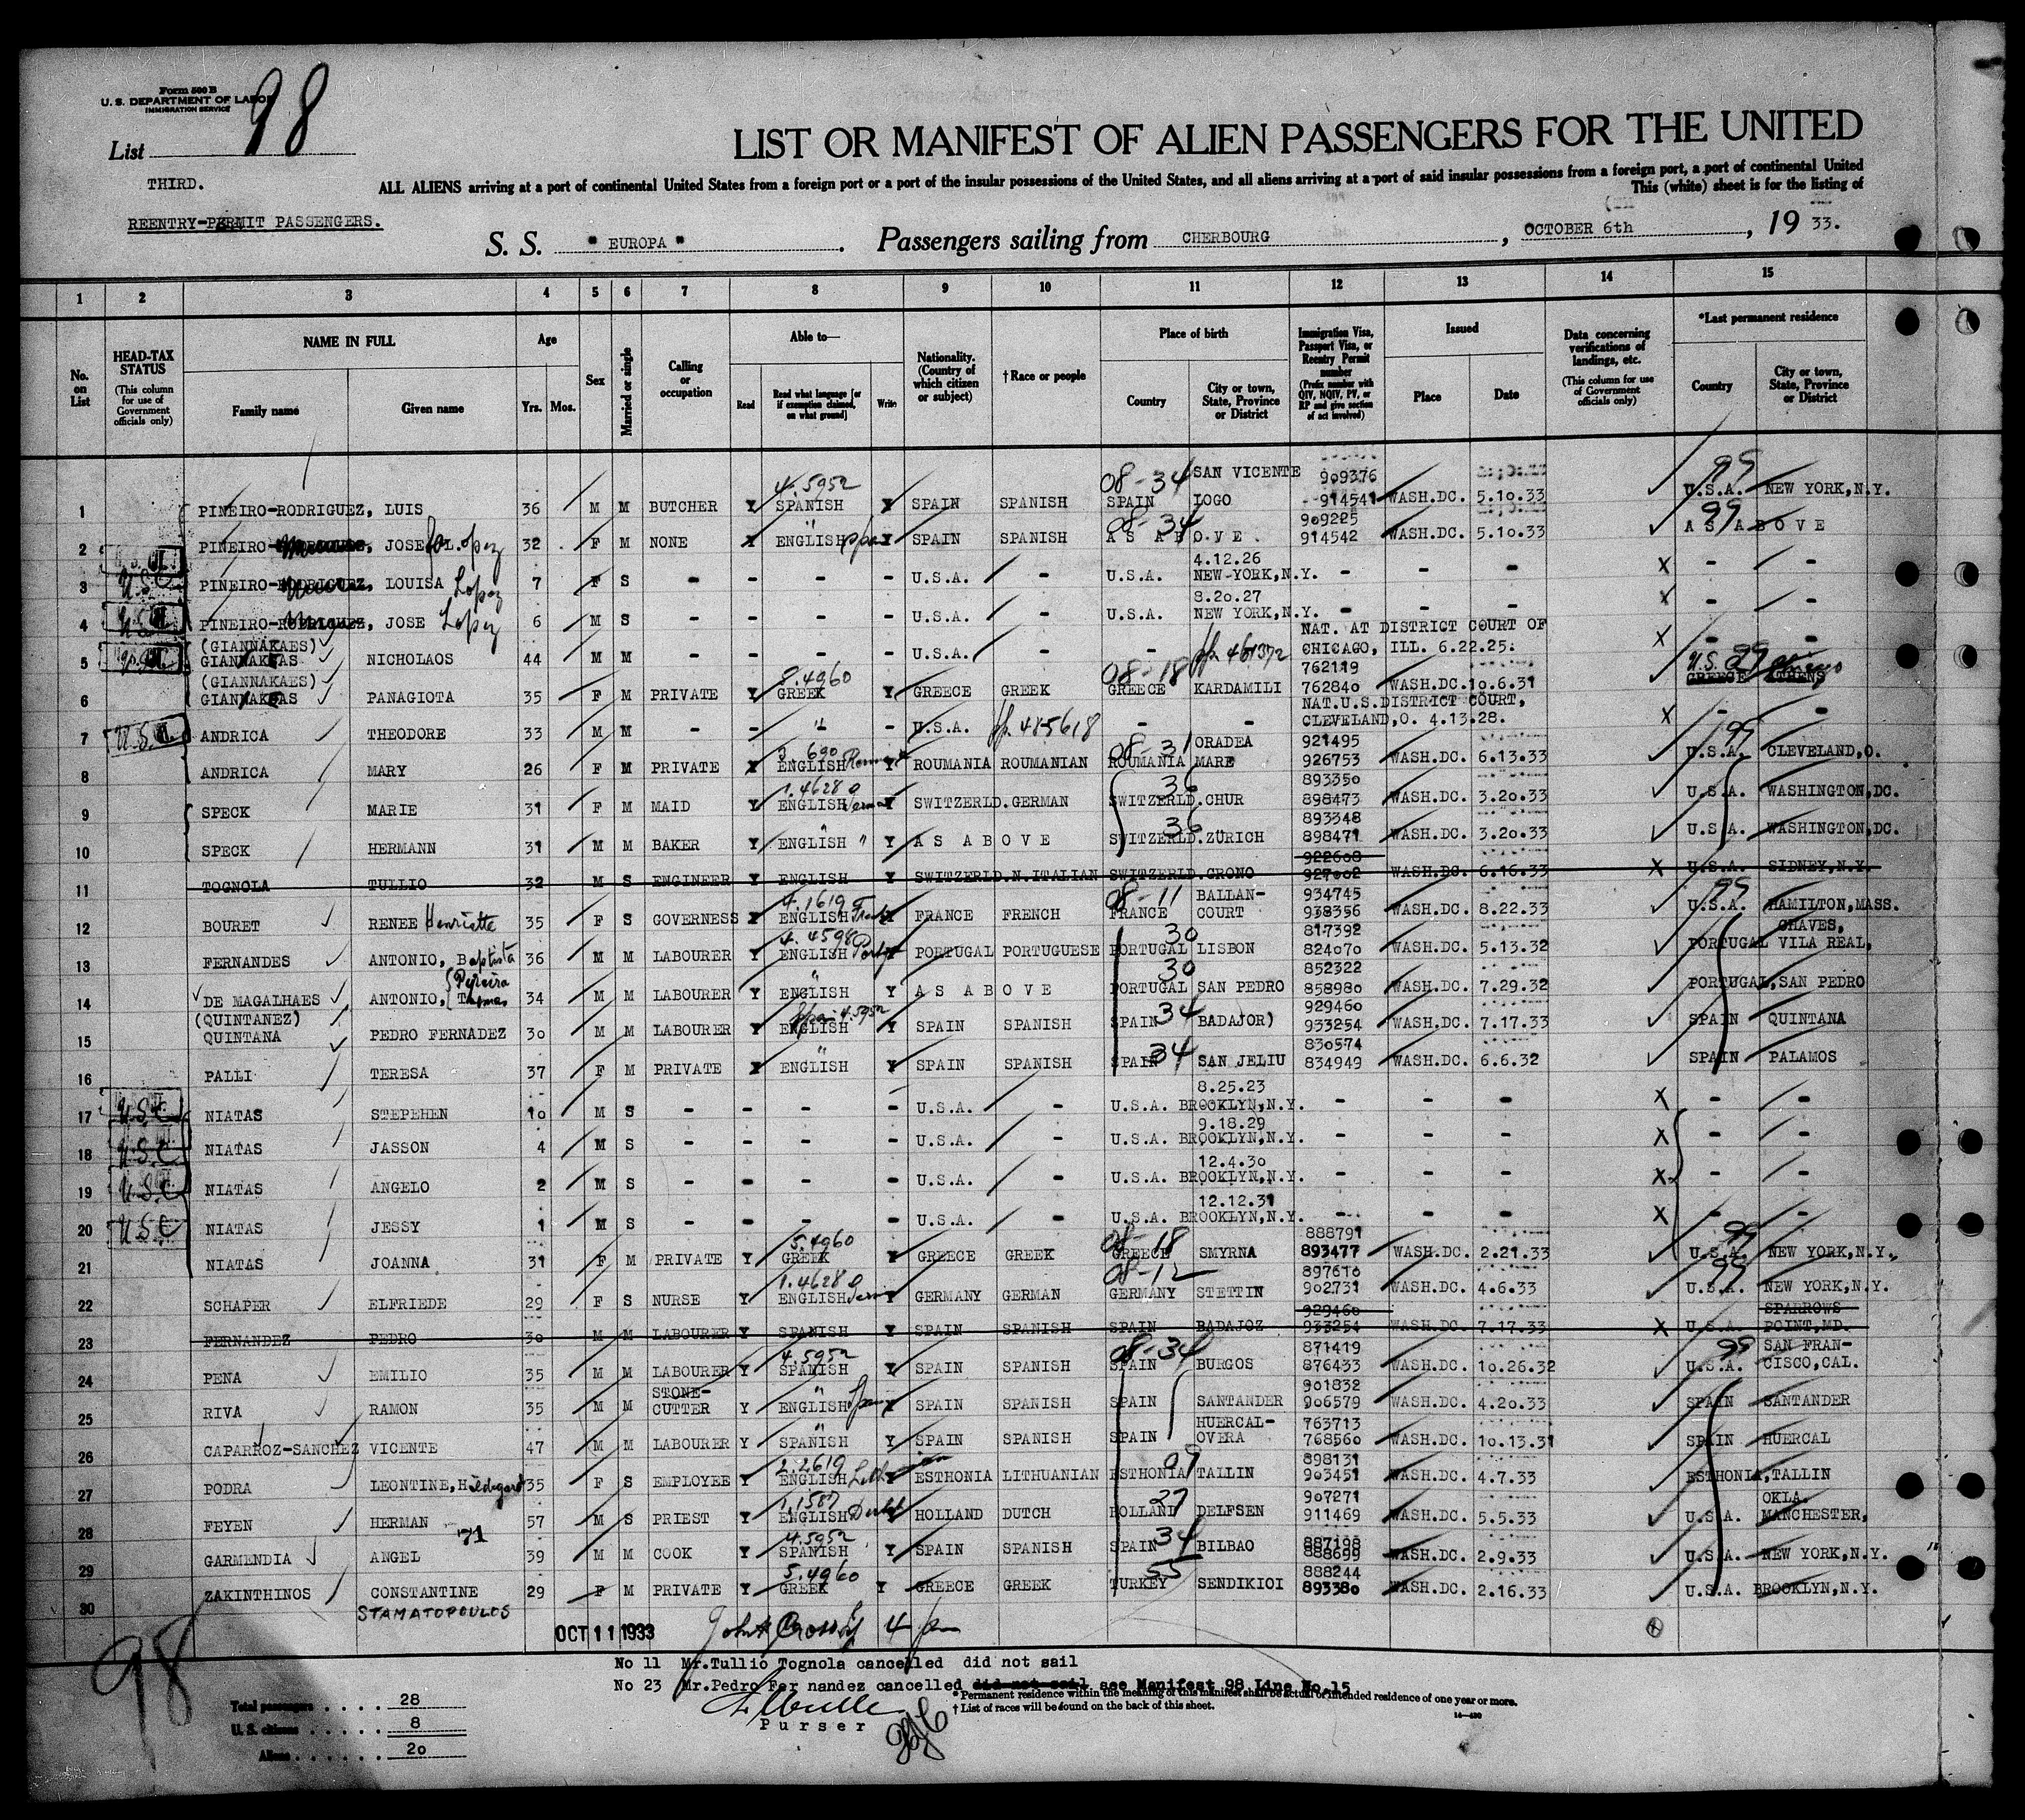 Form 500 B
U. S. DEPARTMENT OF LABOR
IMMIGRATION SERVICE
List 98
THIRD.
REENTRY-PERMIT PASSENGERS.
LIST OR MANIFEST OF ALIEN PASSENGERS FOR THE UNITED
ALL ALIENS arriving at a port of continental United States from a foreign port or a port of the insular possessions of the United States, and all aliens arriving at a port of said insular possessions from a foreign port, a port of continental United
This (white) sheet is for the listing of
S. S. " EUROPA " . Passengers sailing from CHERBOURG , OCTOBER 6th , 19 33.
1 2 3 4 5 6 7 8 9 10 11 12 13 14 15
No. on List
HEAD-TAX STATUS (This column for use of Government officials only)
NAME IN FULL Family name Given name
Age Yrs. Mos.
Sex
Married or single
Calling or occupation
Able to— Read Read what language [or if exemption claimed, on what ground] Write
Nationality. (Country of which citizen or subject)
† Race or people
Place of birth Country City or town, State, Province or District
Immigration Visa, Passport Visa, or Reentry Permit number (Prefix number with QIV, NQIV, PV, or RP and give section of act involved)
Issued Place Date
Data concerning verifications of landings, etc. (This column for use of Government officials only)
*Last permanent residence Country City or town, State, Province or District
4.5952 08-34 SAN VICENTE 909376 99
1 PINEIRO-RODRIGUEZ, LUIS 36 M M BUTCHER Y SPANISH Y SPAIN SPANISH SPAIN LOGO 914541 WASH.DC. 5.10.33 U.S.A. NEW YORK,N.Y.
" 08-34 909225 99
2 PINEIRO-, JOSEfa Lopez 32 F M NONE Y ENGLISH Spa Y SPAIN SPANISH AS ABOVE. 914542 WASH.DC. 5.10.33 AS ABOVE
4.12.26
3 U.S.C. PINEIRO-RODRIGUEZ, LOUISA Lopez 7 F S - - - U.S.A. - U.S.A. NEW-YORK,N.Y. - - - X - -
8.20.27
4 U.S.C. PINEIRO-RODRIGUEZ, JOSE Lopez 6 M S - - - U.S.A. - U.S.A. NEW YORK,N.Y. - - - X - -
(GIANNAKAES) NAT. AT DISTRICT COURT OF
5 GIANNAKEAS NICHOLAOS 44 M M - - - U.S.A. - - pp 461372 CHICAGO, ILL. 6.22.25. X - -
(GIANNAKAES) 5.4960 08-18 762119 U.S. 99
6 GIANNAKEAS PANAGIOTA 35 F M PRIVATE Y GREEK Y GREECE GREEK GREECE KARDAMILI 762840 WASH.DC. 10.6.31 GREECE ATHENS
NAT.U.S.DISTRICT COURT,
7 ANDRICA THEODORE 33 M M - - " - U.S.A. pp 415618 - - CLEVELAND,O. 4.13.28. X - -
3 690 08-31 ORADEA 921495 99
8 ANDRICA MARY 26 F M PRIVATE Y ENGLISH Y ROUMANIA ROUMANIAN ROUMANIA MARE 926753 WASH.DC. 6.13.33 U.S.A. CLEVELAND,O.
1.4628 36 893350
9 SPECK MARIE 31 F M MAID Y ENGLISH German Y SWITZERLD. GERMAN SWITZERLD. CHUR 898473 WASH.DC. 3.20.33 U.S.A. WASHINGTON,DC.
" 36 893348
10 SPECK HERMANN 31 M M BAKER Y ENGLISH " Y AS ABOVE SWITZERLD. ZÜRICH 898471 WASH.DC. 3.20.33 U.S.A. WASHINGTON,DC.
922608
11 TOGNOLA TULLIO 32 M S ENGINEER Y ENGLISH Y SWITZERLD. N.ITALIAN SWITZERLD. GRONO 927002 WASH.DC. 6.16.33 X U.S.A. SIDNEY,N.Y.
4.1619 08-11 BALLAN- 934745 99
12 BOURET RENEE Henriette 35 F S GOVERNESS Y ENGLISH French Y FRANCE FRENCH FRANCE COURT 938356 WASH.DC. 8.22.33 U.S.A. HAMILTON,MASS.
4.4598 30 817392 CHAVES,
13 FERNANDES ANTONIO, Baptista 36 M M LABOURER Y ENGLISH Port Y PORTUGAL PORTUGUESE PORTUGAL LISBON 824070 WASH.DC. 5.13.32 PORTUGAL VILA REAL,
Pereira " 30 852322
14 DE MAGALHAES ANTONIO, 34 M M LABOURER Y ENGLISH Y AS ABOVE PORTUGAL SAN PEDRO 858980 WASH.DC. 7.29.32 PORTUGAL, SAN PEDRO
(QUINTANEZ) Spa 4.5952 34 929460
15 QUINTANA PEDRO FERNADEZ 30 M M LABOURER Y ENGLISH Y SPAIN SPANISH SPAIN BADAJOR) 933254 WASH.DC. 7.17.33 SPAIN QUINTANA
" 34 830574
16 PALLI TERESA 37 F M PRIVATE Y ENGLISH Y SPAIN SPANISH SPAIN SAN JELIU 834949 WASH.DC. 6.6.32 SPAIN PALAMOS
8.25.23
17 U.S.C. NIATAS STEPEHEN 10 M S - - - - U.S.A. - U.S.A. BROOKLYN,N.Y. - - - X - -
9.18.29
18 U.S.C. NIATAS JASSON 4 M S - - - - U.S.A. - U.S.A. BROOKLYN,N.Y. - - - X - -
12.4.30
19 U.S.C. NIATAS ANGELO 2 M S - - - - U.S.A. - U.S.A. BROOKLYN,N.Y. - - - X - -
12.12.31
20 U.S.C. NIATAS JESSY 1 M S - - - - U.S.A. - U.S.A. BROOKLYN,N.Y. - - - X - -
5.4960 08-18 888791 99
21 NIATAS JOANNA 31 F M PRIVATE Y GREEK Y GREECE GREEK GREECE SMYRNA 893477 WASH.DC. 2.21.33 U.S.A. NEW YORK,N.Y.
1.4628 08-12 897610 99
22 SCHAPER ELFRIEDE 29 F S NURSE Y ENGLISH German Y GERMANY GERMAN GERMANY STETTIN 902731 WASH.DC. 4.6.33 U.S.A. NEW YORK,N.Y.
929460 SPARROWS
23 FERNANDEZ PEDRO 30 M M LABOURER Y SPANISH Y SPAIN SPANISH SPAIN BADAJOZ 933254 WASH.DC. 7.17.33 X U.S.A. POINT,MD.
4.5952 08-34 871419 99 SAN FRAN-
24 PENA EMILIO 35 M M LABOURER Y SPANISH Y SPAIN SPANISH SPAIN BURGOS 876433 WASH.DC. 10.26.32 U.S.A. CISCO,CAL.
STONE- " 901832
25 RIVA RAMON 35 M M CUTTER Y ENGLISH Span Y SPAIN SPANISH SPAIN SANTANDER 906579 WASH.DC. 4.20.33 SPAIN SANTANDER
" HUERCAL- 763713
26 CAPARROZ-SANCHEZ VICENTE 47 M M LABOURER Y SPANISH Y SPAIN SPANISH SPAIN OVERA 768560 WASH.DC. 10.13.31 SPAIN HUERCAL
2.2619 09 898131
27 PODRA LEONTINE, Hildegard 35 F S EMPLOYEE Y ENGLISH Lithuanian Y ESTHONIA LITHUANIAN ESTHONIA TALLIN 903451 WASH.DC. 4.7.33 ESTHONIA, TALLIN
1.1587 27 907271 OKLA.
28 FEYEN HERMAN 57 M S PRIEST Y ENGLISH Dutch Y HOLLAND DUTCH HOLLAND DELFSEN 911469 WASH.DC. 5.5.33 U.S.A. MANCHESTER,
71 4.5952 34 887198
29 GARMENDIA ANGEL 39 M M COOK Y SPANISH Y SPAIN SPANISH SPAIN BILBAO 888699 WASH.DC. 2.9.33 U.S.A. NEW YORK,N.Y.
5.4960 55 888244
30 ZAKINTHINOS CONSTANTINE 29 F M PRIVATE Y GREEK Y GREECE GREEK TURKEY SENDIKIOI 893380 WASH.DC. 2.16.33 U.S.A. BROOKLYN,N.Y.
STAMATOPOULOS
OCT 11 1933 John 4 pm
98
No 11 Mr.Tullio Tognola cancelled did not sail
No 23 Mr.Pedro Fer nandez cancelled did not sail see Manifest 98 Line No.15
Purser
* Permanent residence within the meaning of this manifest shall be actual or intended residence of one year or more.
† List of races will be found on the back of this sheet.
14—420
Total passengers . . . . 28
U. S. citizens . . . . . 8
Aliens . . . . . . 20